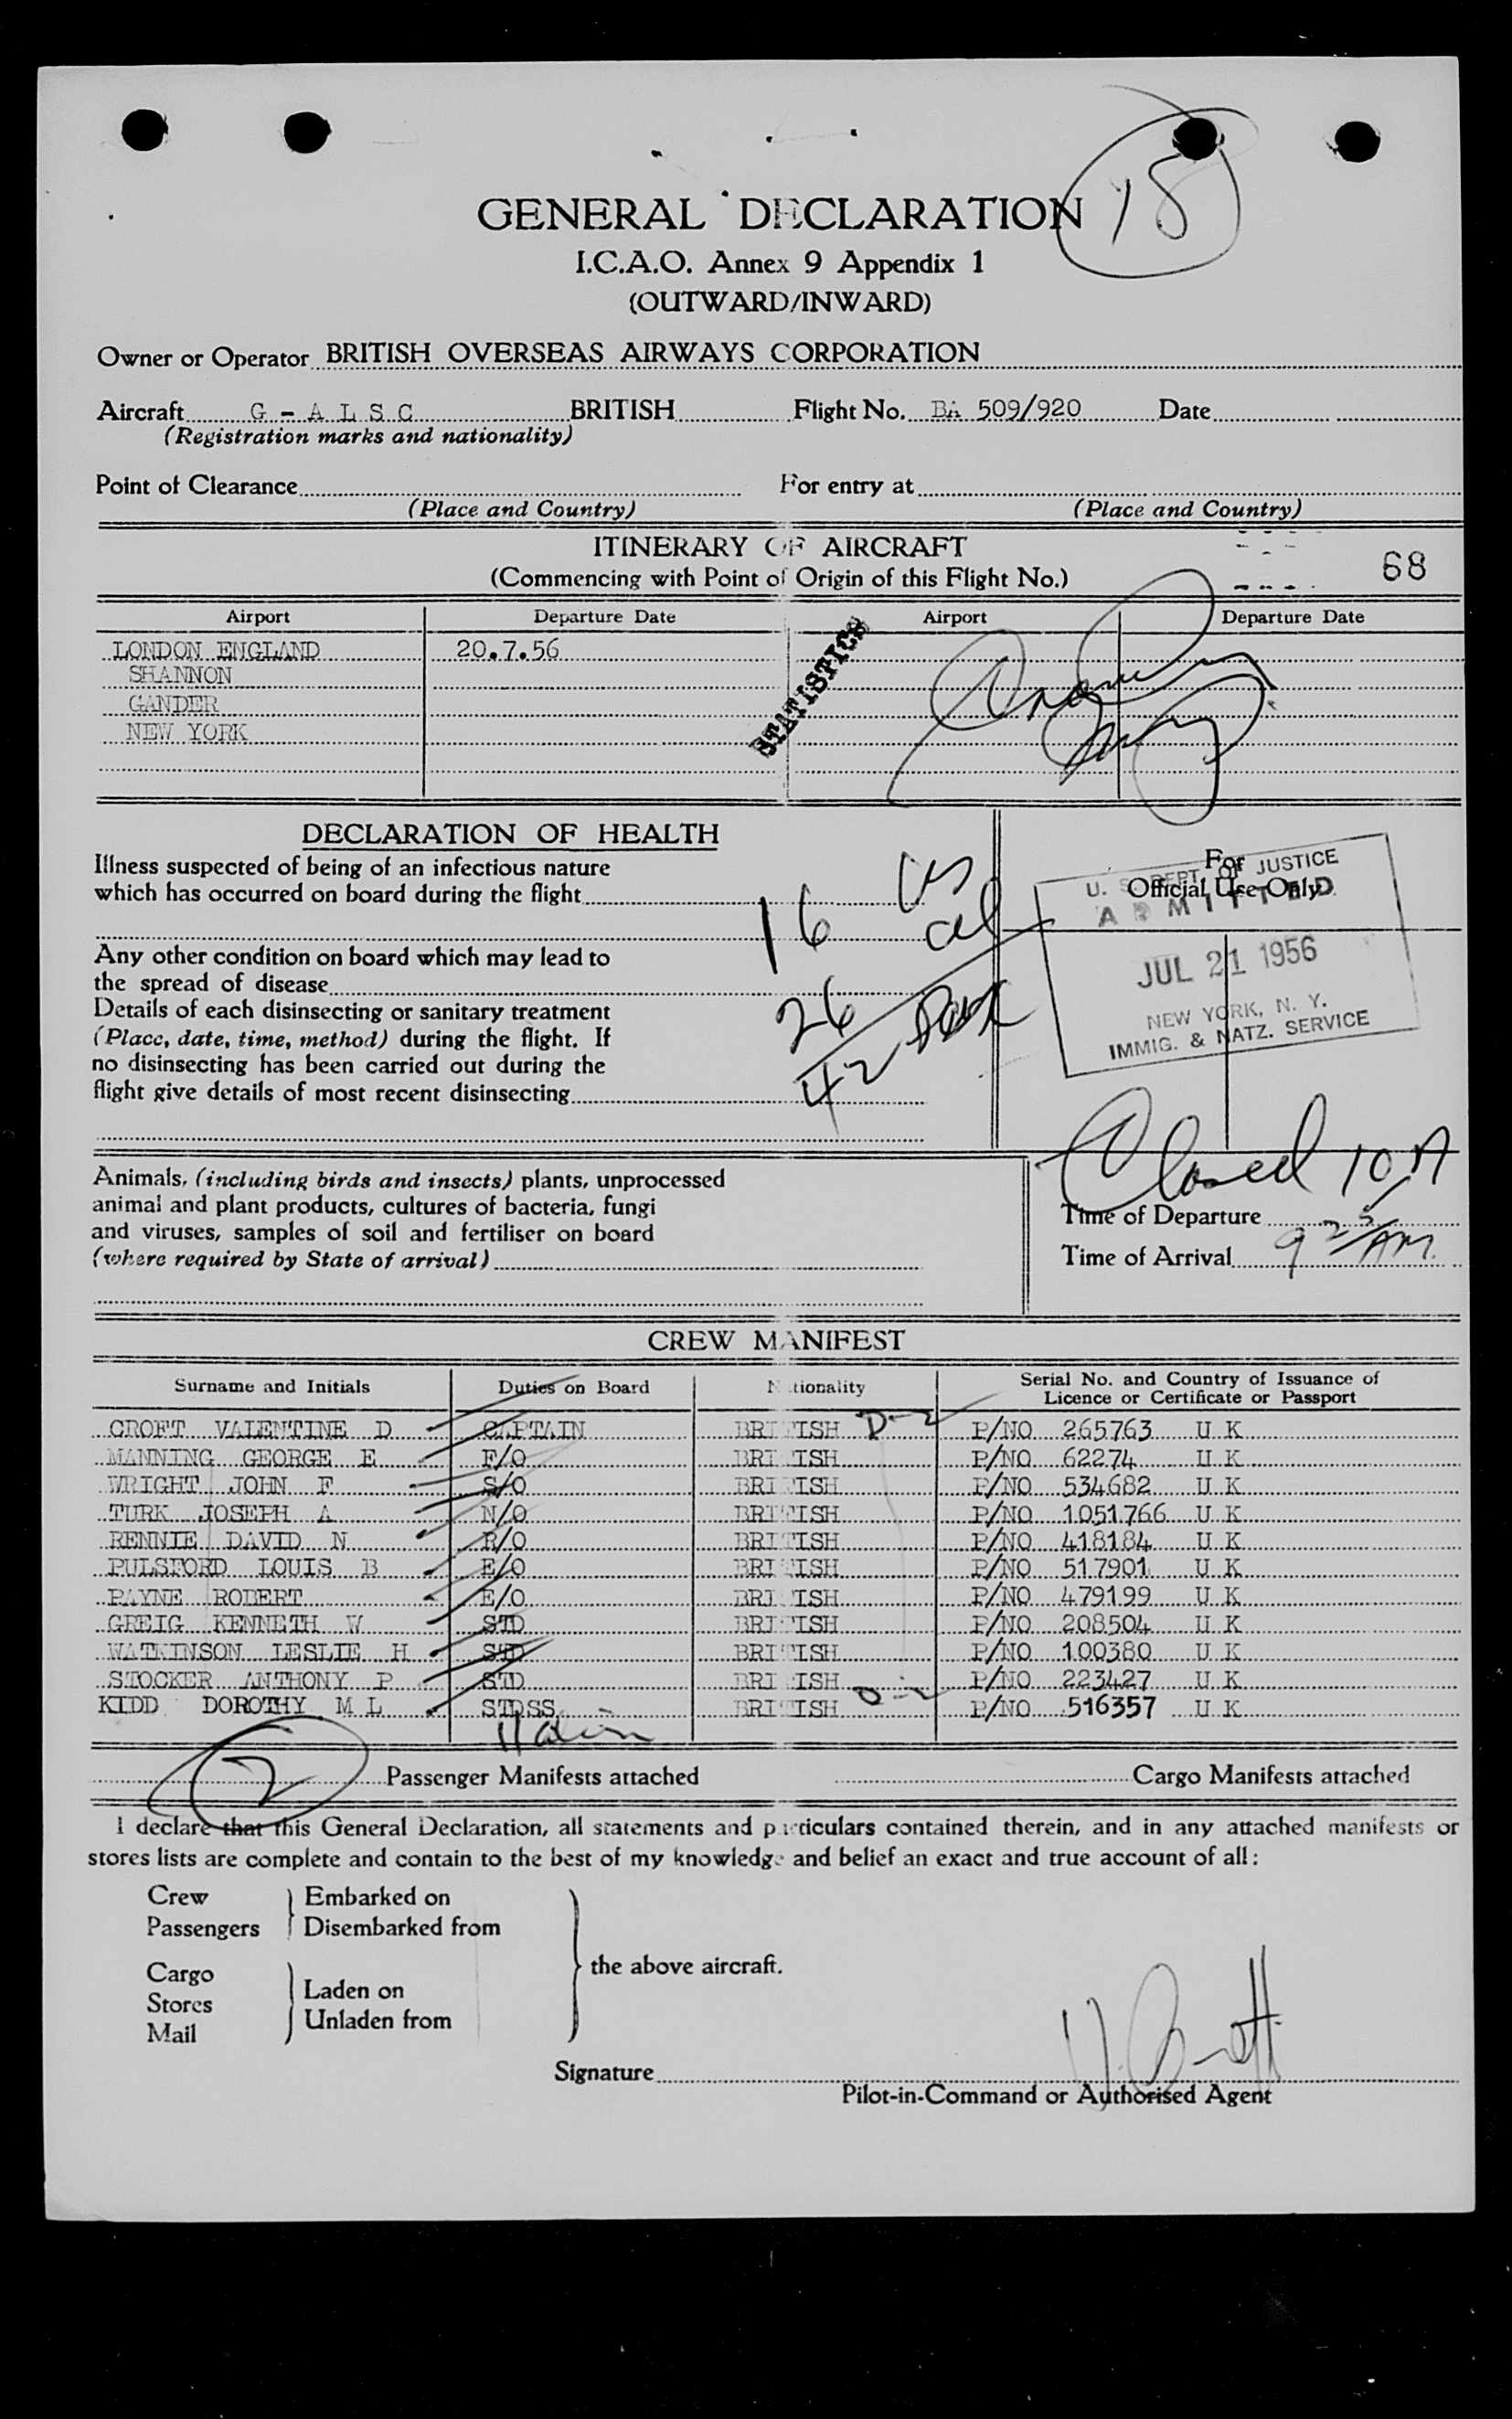 18
GENERAL DECLARATION
I.C.A.O. Annex 9 Appendix 1
(OUTWARD/INWARD)
Owner or Operator BRITISH OVERSEAS AIRWAYS CORPORATION
Aircraft G - A L S C BRITISH Flight No. BA 509/920 Date
(Registration marks and nationality)
Point of Clearance For entry at
(Place and Country) (Place and Country)
ITINERARY OF AIRCRAFT
(Commencing with Point of Origin of this Flight No.) 68
Airport Departure Date Airport Departure Date
LONDON ENGLAND 20.7.56
SHANNON
GANDER
NEW YORK
STATISTICS
DECLARATION OF HEALTH
Illness suspected of being of an infectious nature
which has occurred on board during the flight
Any other condition on board which may lead to
the spread of disease
Details of each disinsecting or sanitary treatment
(Place, date, time, method) during the flight. If
no disinsecting has been carried out during the
flight give details of most recent disinsecting
16
26
42
For
Official Use Only
U. S. DEPT. OF JUSTICE
ADMITTED
JUL 21 1956
NEW YORK, N. Y.
IMMIG. & NATZ. SERVICE
Closed 10 A
Animals, (including birds and insects) plants, unprocessed
animal and plant products, cultures of bacteria, fungi
and viruses, samples of soil and fertiliser on board
(where required by State of arrival)
Time of Departure
Time of Arrival 9 25 AM.
CREW MANIFEST
Surname and Initials Duties on Board Nationality Serial No. and Country of Issuance of
Licence or Certificate or Passport
CROFT VALENTINE D CAPTAIN BRITISH D-2 P/NO 265763 U K
MANNING GEORGE E F/O BRITISH P/NO 62274 U K
WRIGHT JOHN F S/O BRITISH P/NO 534682 U K
TURK JOSEPH A N/O BRITISH P/NO 1051766 U K
RENNIE DAVID N R/O BRITISH P/NO 418184 U K
PULSFORD LOUIS B E/O BRITISH P/NO 517901 U K
PAYNE ROBERT E/O BRITISH P/NO 479199 U K
GREIG KENNETH W STD BRITISH P/NO 208504 U K
WATKINSON LESLIE H STD BRITISH P/NO 100380 U K
STOCKER ANTHONY P STD BRITISH P/NO 223427 U K
KIDD DOROTHY M L STDSS BRITISH D-2 P/NO 516357 U K
2 Passenger Manifests attached Cargo Manifests attached
I declare that this General Declaration, all statements and particulars contained therein, and in any attached manifests or
stores lists are complete and contain to the best of my knowledge and belief an exact and true account of all:
Crew Embarked on
Passengers Disembarked from
the above aircraft.
Cargo
Stores Laden on
Mail Unladen from
Signature
Pilot-in-Command or Authorised Agent